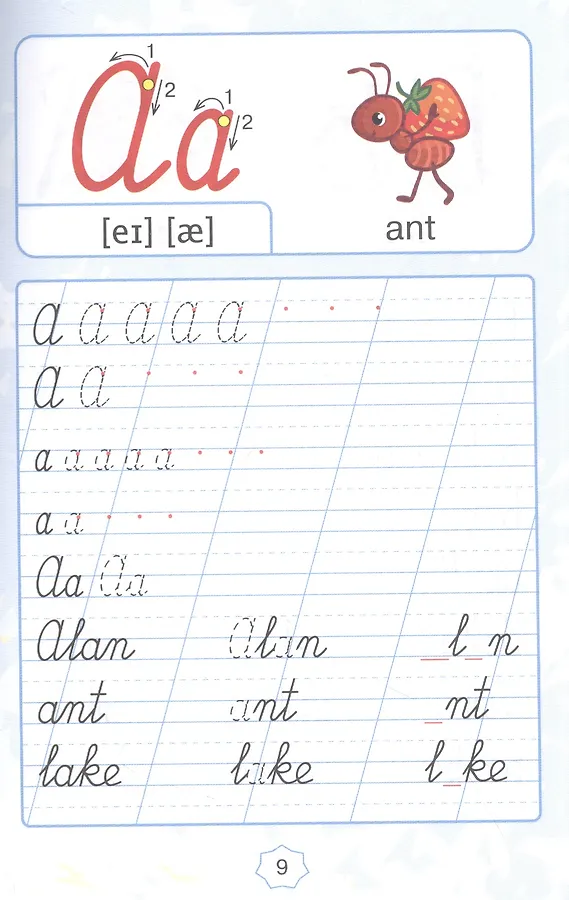 1 1
Aa 2 2
[eɪ] [æ] ant
a a a a a
a a
a a a a a
a a
Aa Aa
Alan Alan _l_n
ant ant _nt
lake lake l_ke
9